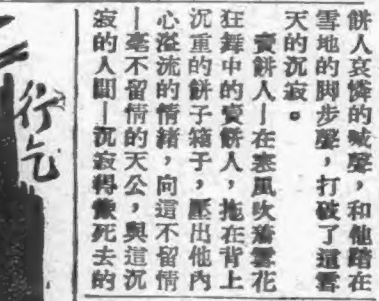 餅人哀憐的喊聲，和他踏在
雪地的脚步聲，打破了這雪
天的沉寂。
賣餅人—在寒風吹舞雪花
狂舞中的賣餅人，拖在背上
沉重的餅子箱子，壓出他內
心溢流的情緒，向這不留情
—毫不留情的天公，與這沉
寂的人間—沉寂得像死去的
行乞